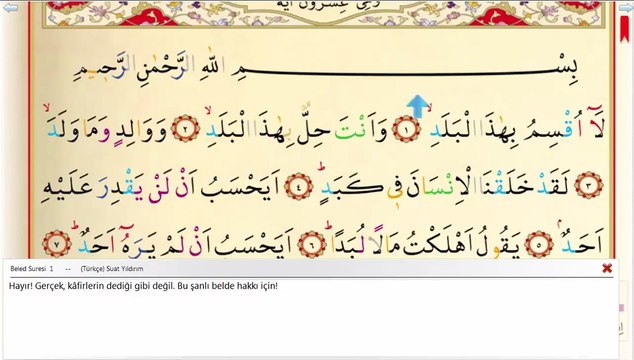 وهي عشرون آية
بِسْمِ اللّٰهِ الرَّحْمٰنِ الرَّحٖيمِ
لَٓا اُقْسِمُ بِهٰذَا الْبَلَدِۙ ﴿١﴾ وَاَنْتَ حِلٌّ بِهٰذَا الْبَلَدِۙ ﴿٢﴾ وَوَالِدٍ وَمَا وَلَدَۙ
﴿٣﴾ لَقَدْ خَلَقْنَا الْاِنْسَانَ فٖي كَبَدٍۜ ﴿٤﴾ اَيَحْسَبُ اَنْ لَنْ يَقْدِرَ عَلَيْهِ
اَحَدٌۢ ﴿٥﴾ يَقُولُ اَهْلَكْتُ مَالًا لُبَدًاۜ ﴿٦﴾ اَيَحْسَبُ اَنْ لَمْ يَرَهُٓ اَحَدٌۜ ﴿٧﴾
Beled Suresi 1 -- (Türkçe) Suat Yıldırım
Hayır! Gerçek, kâfirlerin dediği gibi değil. Bu şanlı belde hakkı için!